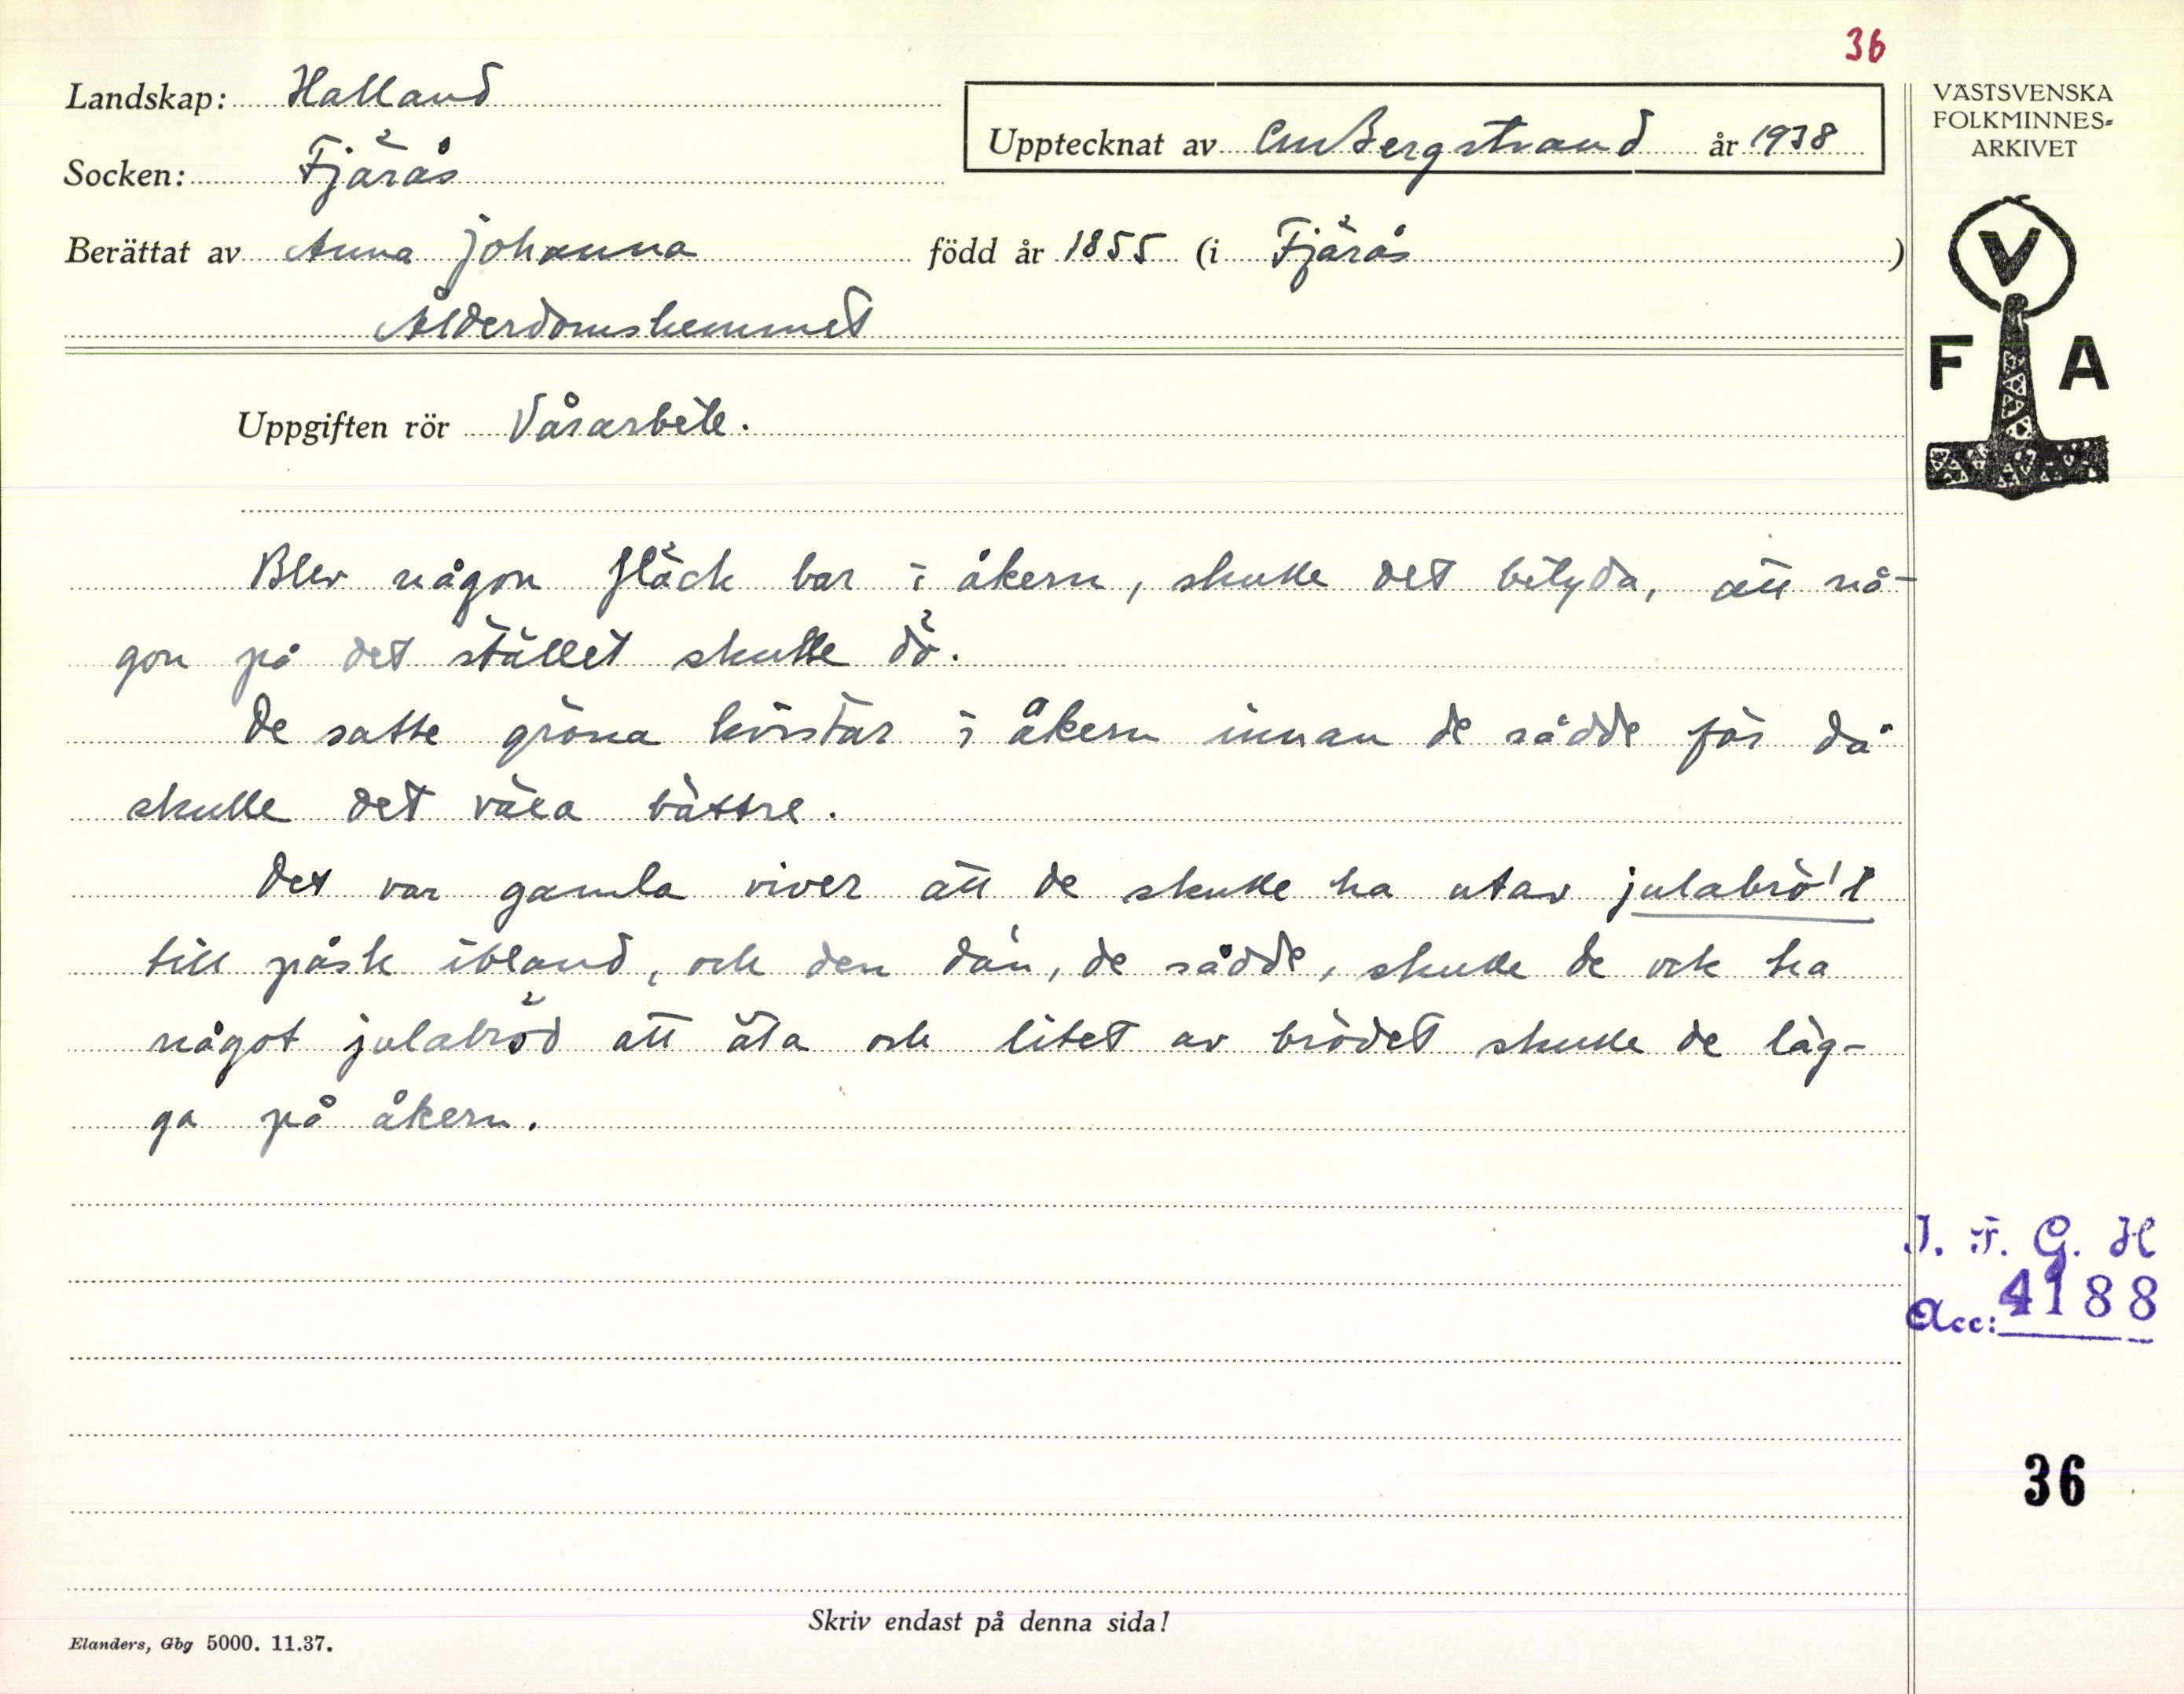 36
Landskap: Halland
Socken: Fjärås
Upptecknat av CMBergstrand år 1938
Berättat av Anna Johanna född år 1855 (i Fjärås )
Ålderdomshemmet
Uppgiften rör Vårarbete.
Blev någon fläck bar i åkern, skulle det betyda, att nå-
gon på det stället skulle dö.
De satte gröna kvistar i åkern innan de sådde för då
skulle det växa bättre.
Det var gamla viver att de skulle ha utav julabrö't
till påsk ibland, och den dán, de sådde, skulle de ock ha
något julabröd att äta och litet av brödet skulle de läg-
ga på åkern.
Skriv endast på denna sida!
Elanders, Gbg 5000. 11.37.
VÄSTSVENSKA
FOLKMINNES-
ARKIVET
V
F A
I. F. G. H
Acc: 4188
36